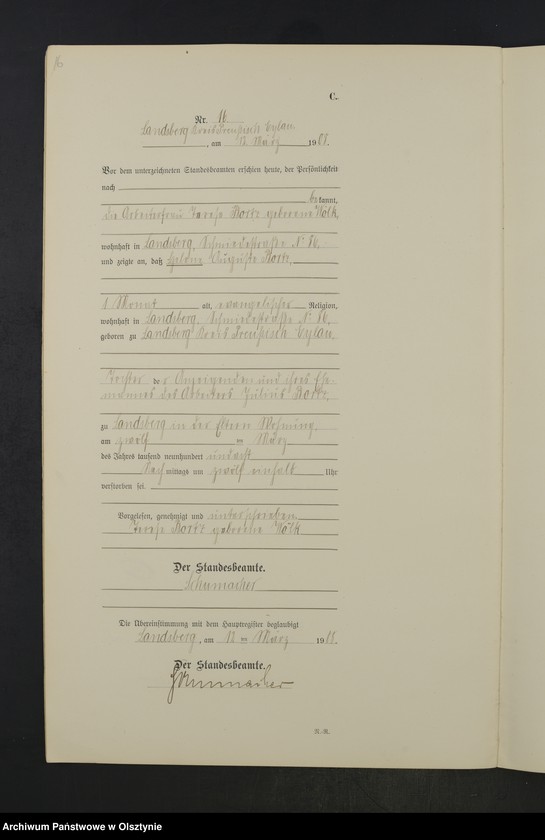 16
C.
Nr. 16
Landsberg Kreis Preußisch Eylau
, am 12 März 1908.
Vor dem unterzeichneten Standesbeamten erschien heute, der Persönlichkeit
nach
bekannt,
die Arbeiterfrau Borkz geborene Wölk,
wohnhaft in Landsberg, Schmiedestraße No 86,
und zeigte an, daß Helene Auguste Borkz,
1 Monat alt, evangelischer Religion,
wohnhaft in Landsberg, Schmiedestraße No 86,
geboren zu Landsberg Kreis Preußisch Eylau,
Tochter der Anzeigenden und ihres Ehe-
mannes des Arbeiters Julius Borkz,
zu Landsberg in der Eltern Wohnung,
am zwölf ten März
des Jahres tausend neunhundert und acht
Nach mittags um zwölf einhalb Uhr
verstorben sei.
Vorgelesen, genehmigt und unterschrieben
Borkz geborene Wölk
Der Standesbeamte.
Schumacher
Die Übereinstimmung mit dem Hauptregister beglaubigt
Landsberg, am 12 ten März 1908.
Der Standesbeamte.
Schumacher
R.-R.
Archiwum Państwowe w Olsztynie